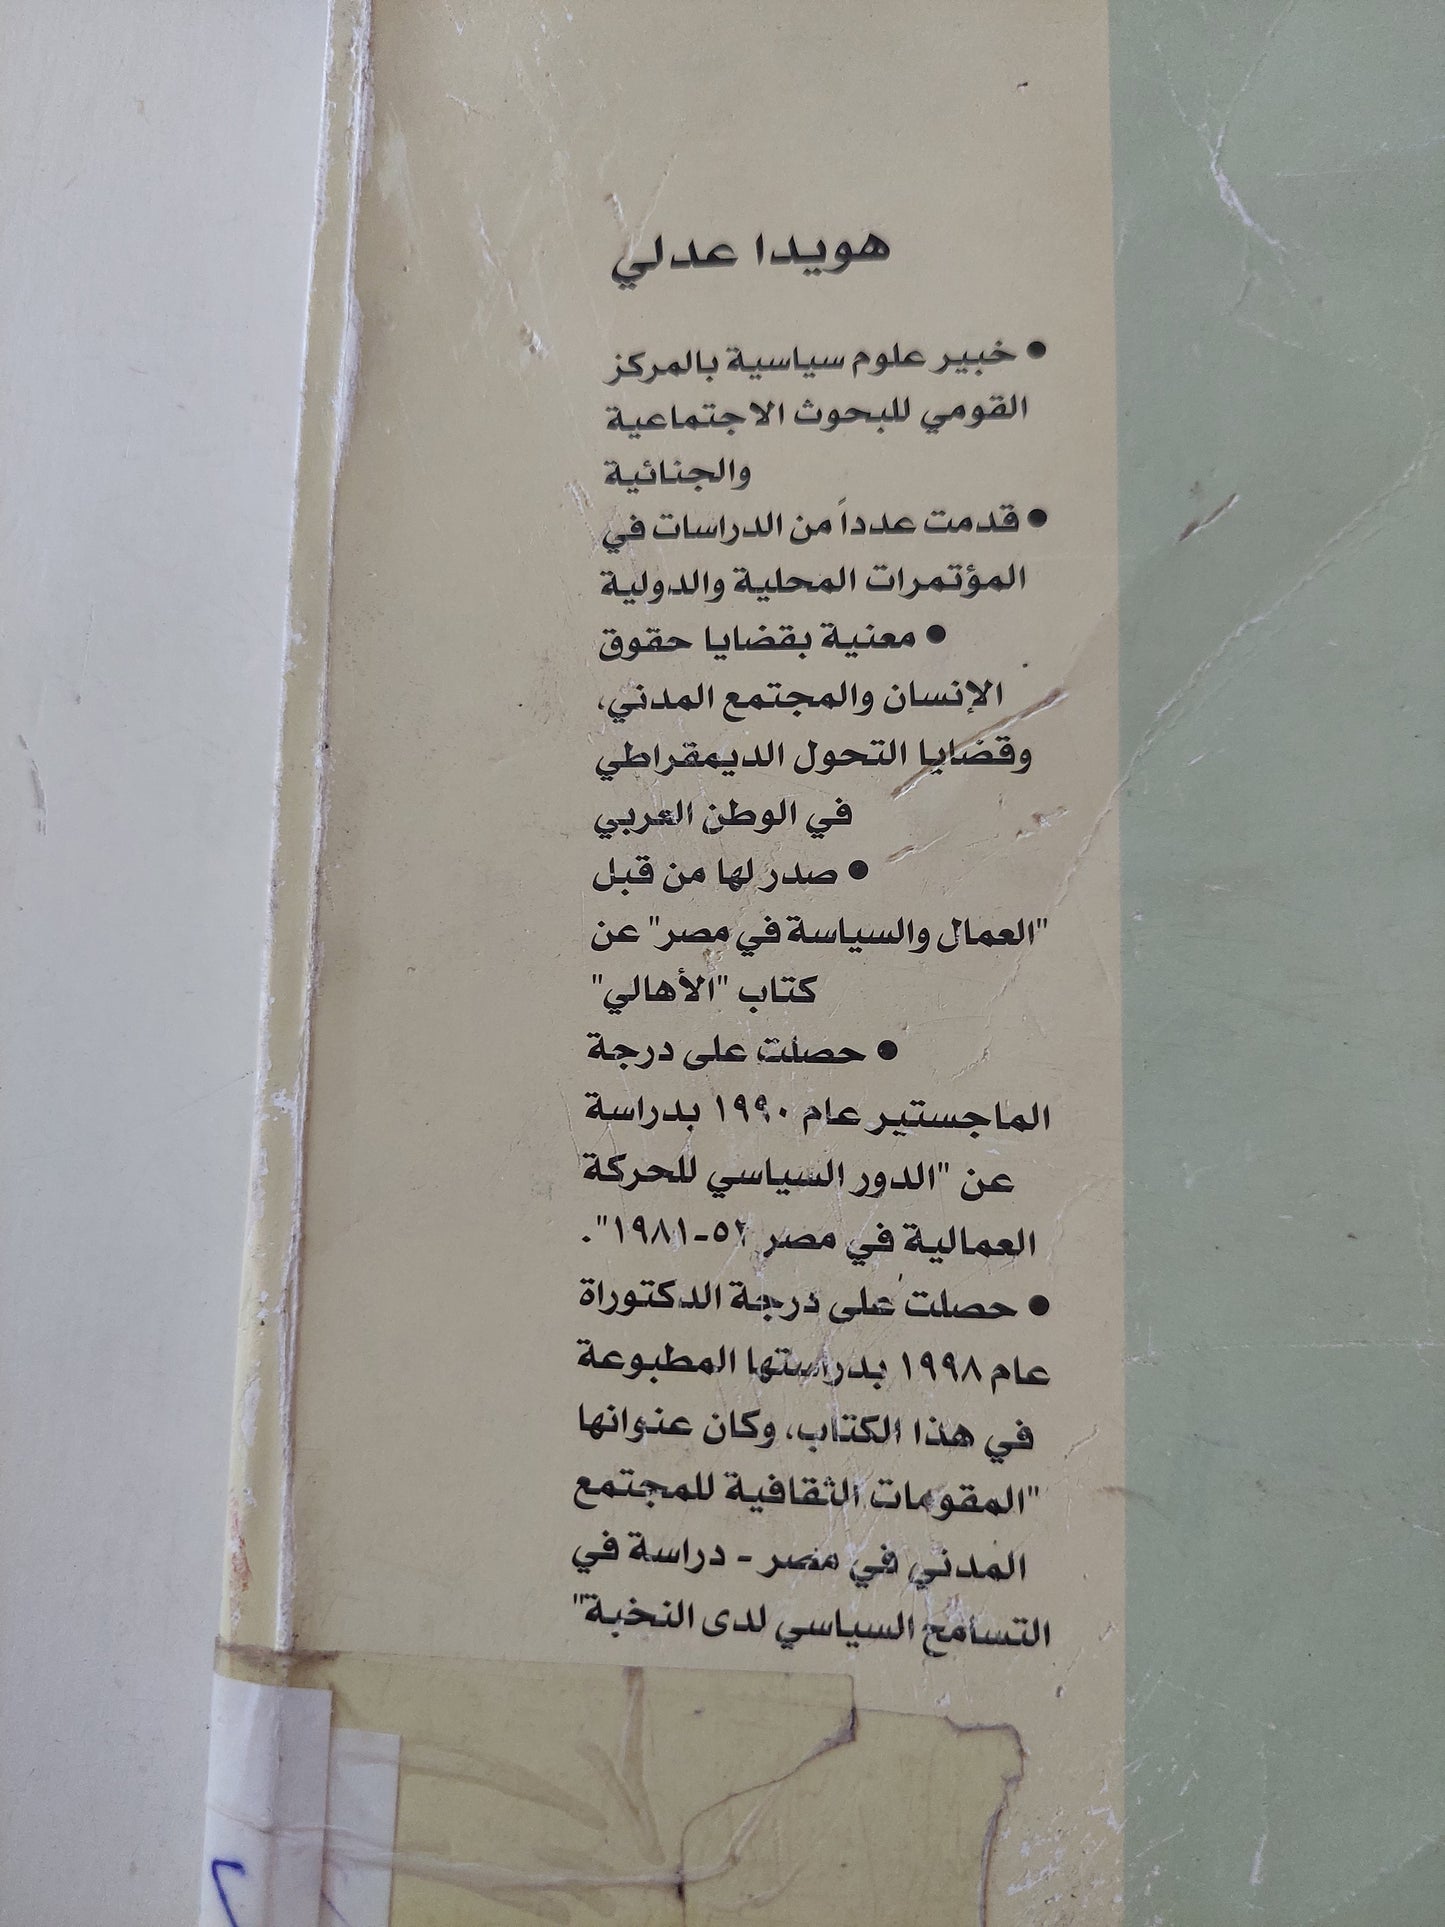 هويدا عدلي
• خبير علوم سياسية بالمركز
القومي للبحوث الاجتماعية
والجنائية
• قدمت عدداً من الدراسات في
المؤتمرات المحلية والدولية
• معنية بقضايا حقوق
الإنسان والمجتمع المدني،
وقضايا التحول الديمقراطي
في الوطن العربي
• صدر لها من قبل
"العمال والسياسة في مصر" عن
كتاب "الأهالي"
• حصلت على درجة
الماجستير عام ١٩٩٠ بدراسة
عن "الدور السياسي للحركة
العمالية في مصر ٥٢-١٩٨١".
• حصلت على درجة الدكتوراة
عام ١٩٩٨ بدراستها المطبوعة
في هذا الكتاب، وكان عنوانها
"المقومات الثقافية للمجتمع
المدني في مصر - دراسة في
التسامح السياسي لدى النخبة"